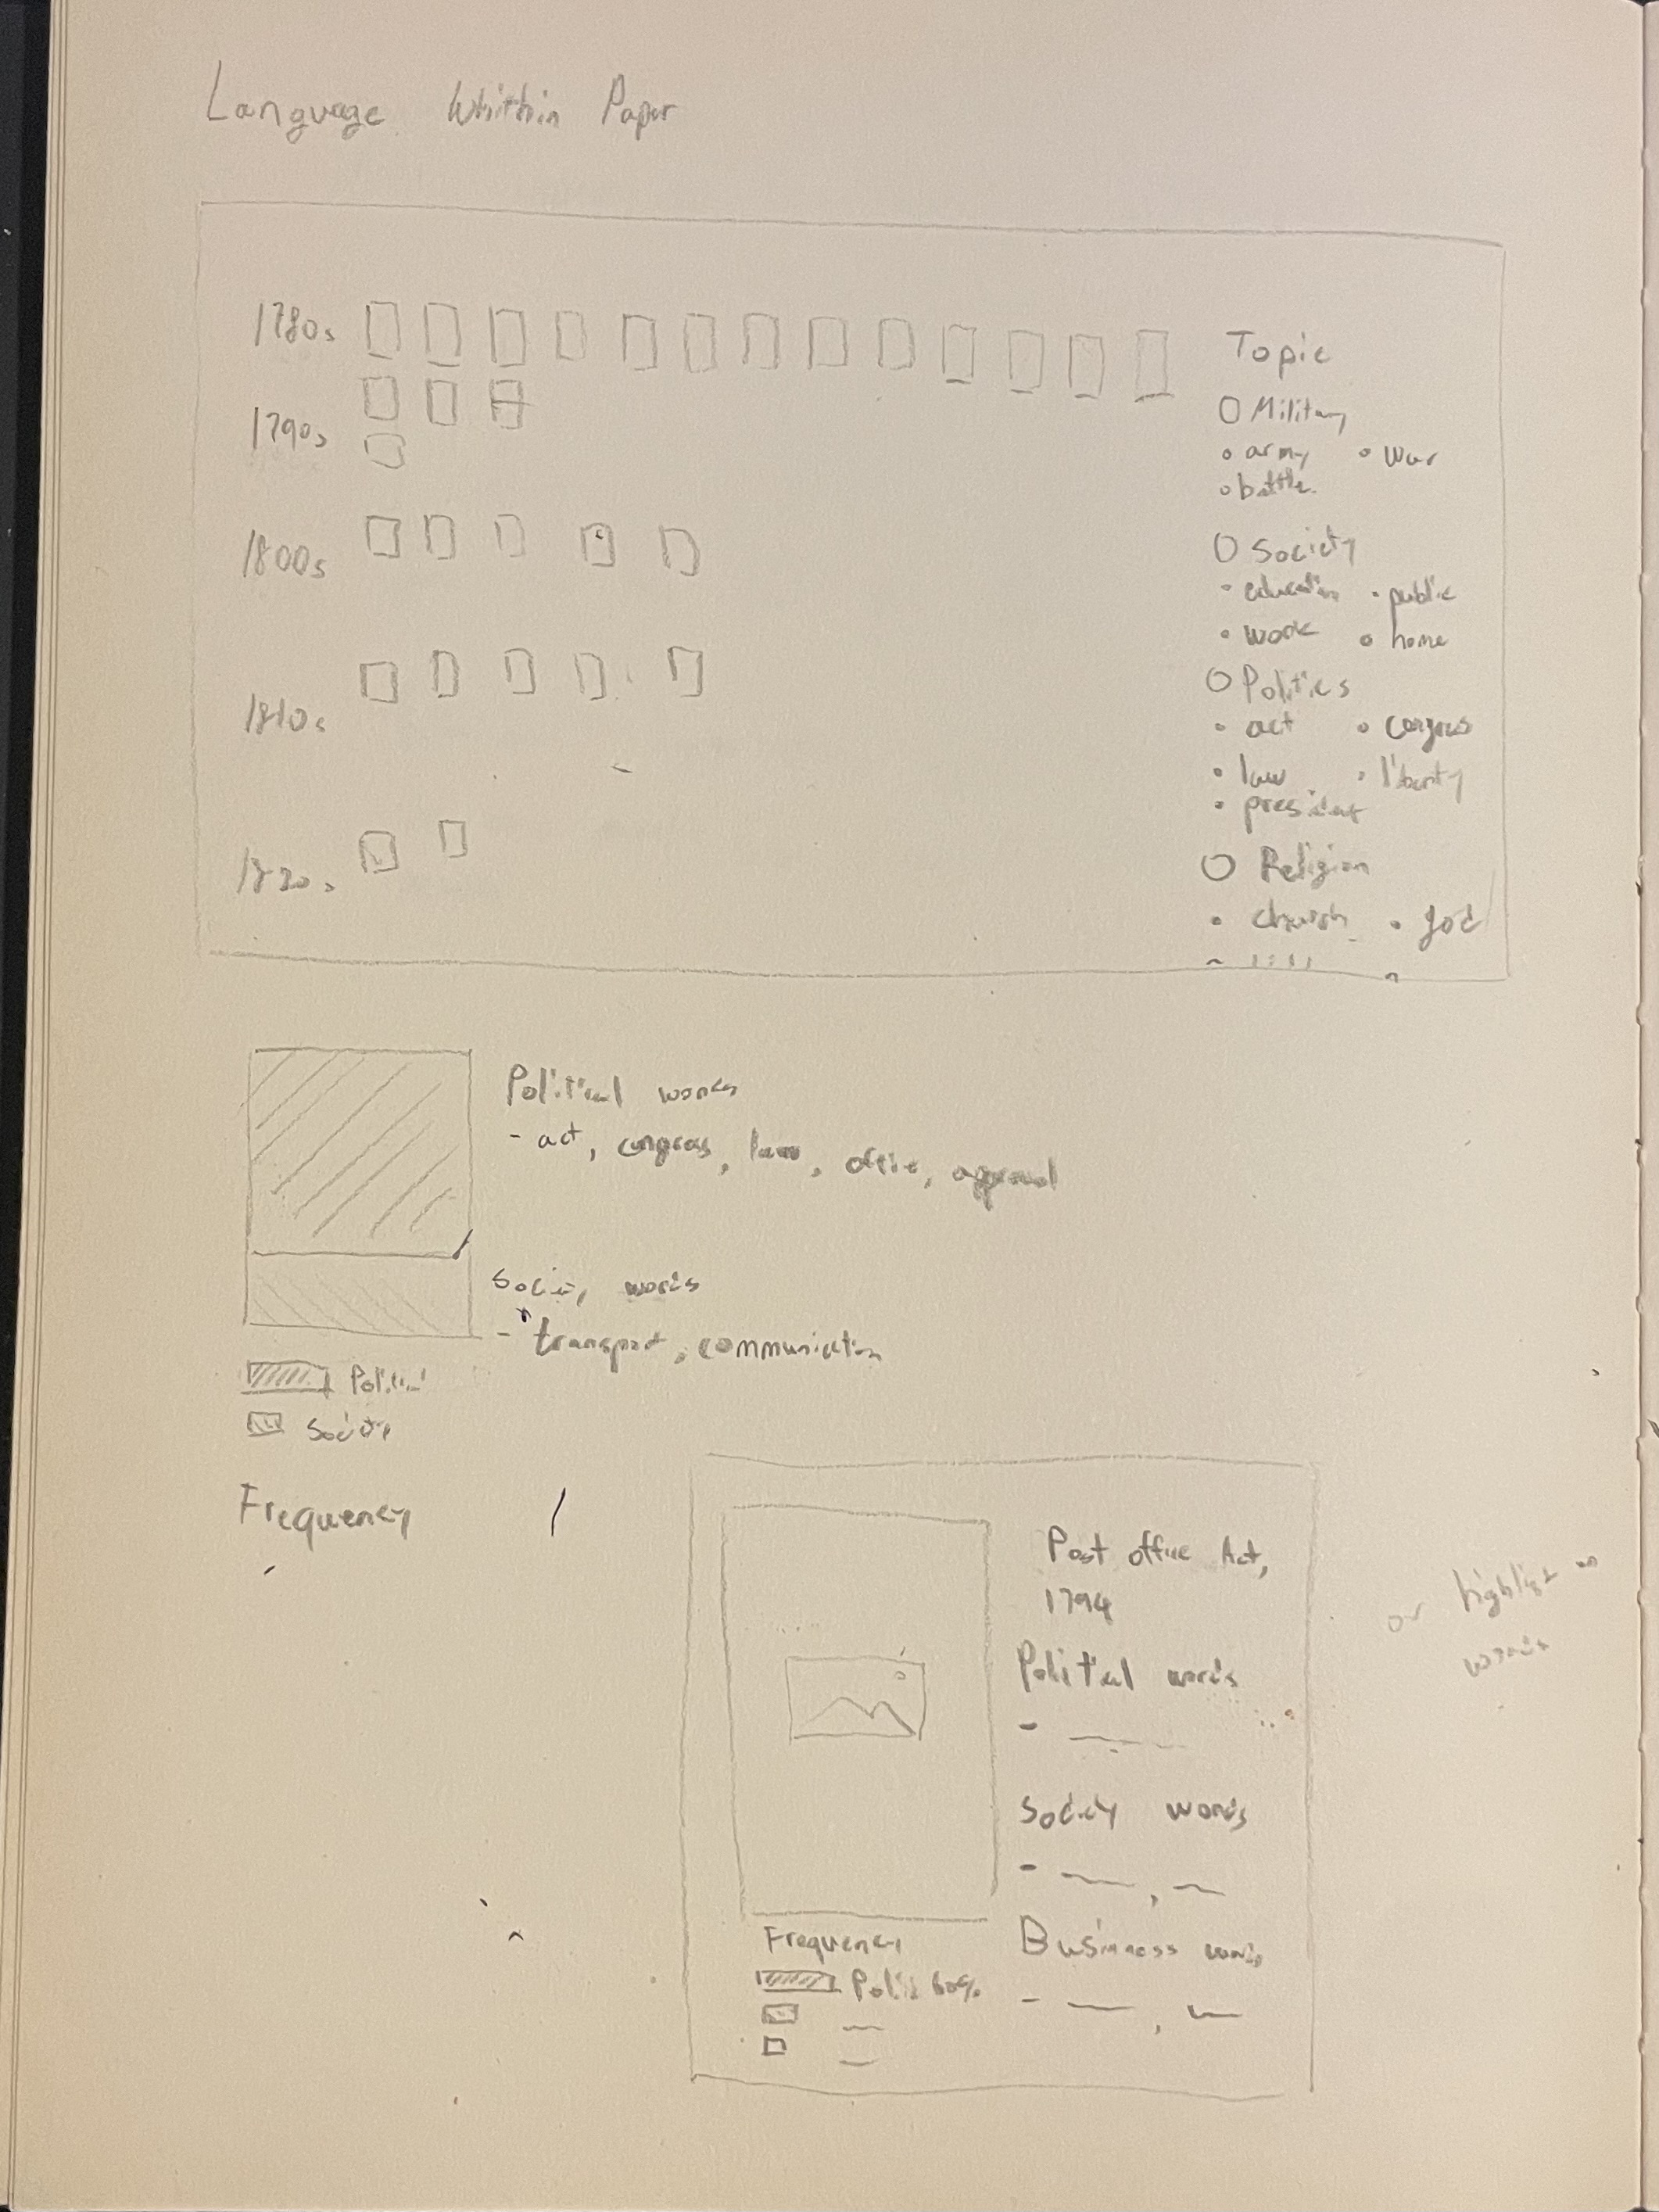 Language Whithin Paper
1780s
1790s
1800s
1810s
1820s
Topic
Military
army war
battle
Society
education public
work home
Politics
act congress
law liberty
president
Religion
church god
Political words
- act, congress, law, office, approval
Society words
- transport, communication
Political
Society
Frequency
Post office Act,
1794
Political words
Society words
Business words
Frequency
Politic 60%
or highlight on
words